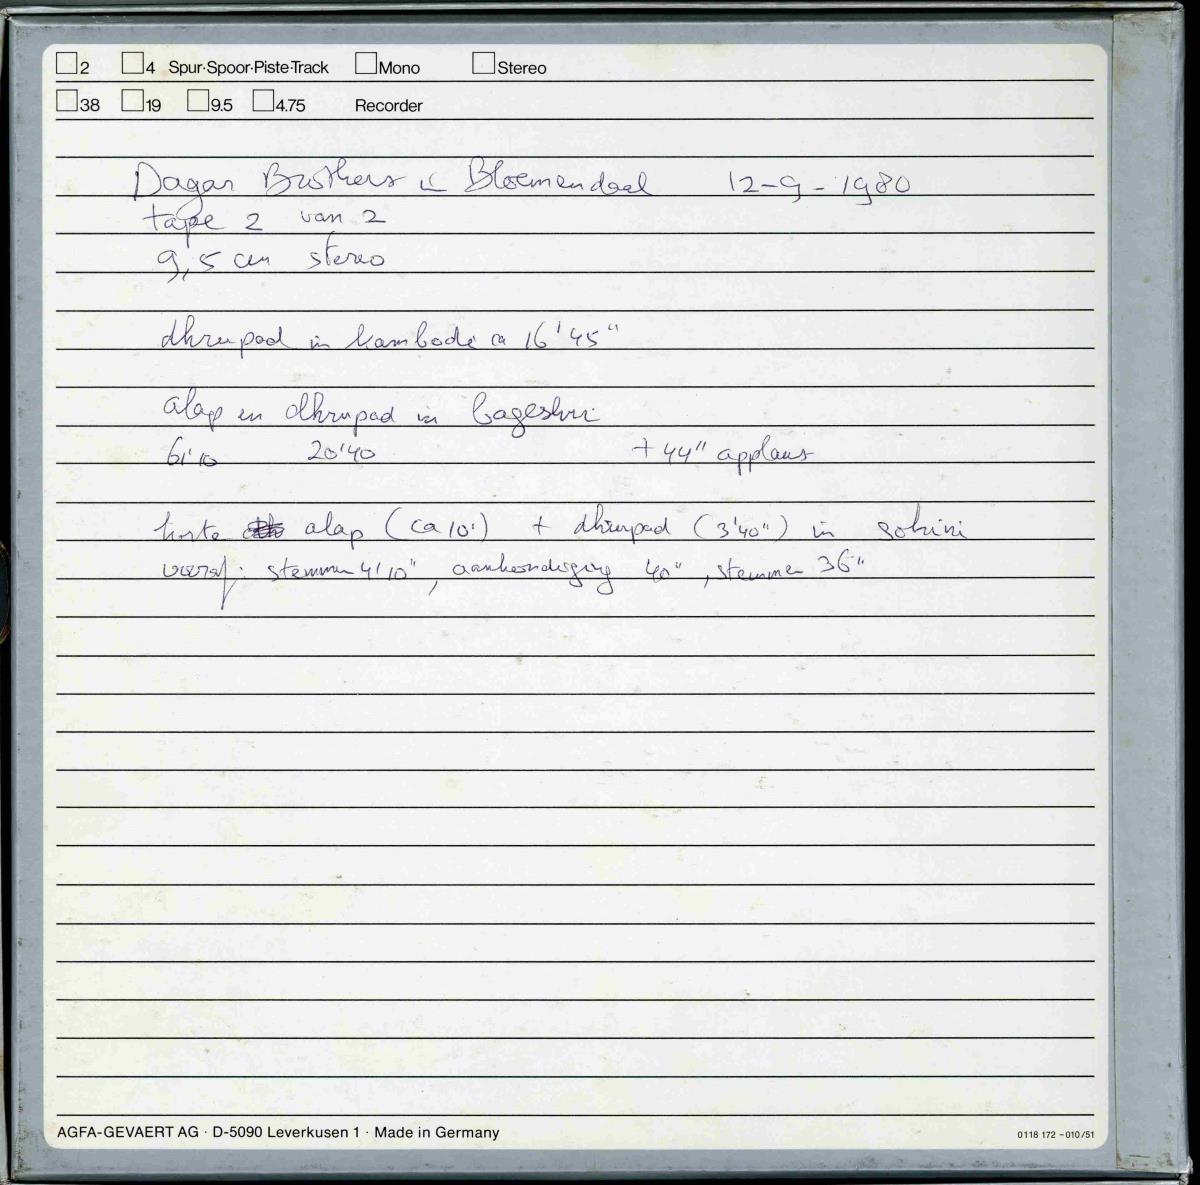 2 4 Spur·Spoor·Piste·Track Mono Stereo
38 19 9.5 4.75 Recorder
Dagar Brothers in Bloemendaal 12-9-1980
tape 2 van 2
9,5 cm stereo
dhrupad in kambodi ca 16'45"
alap en dhrupad in bageshri
6'10 20'40 + 44" applaus
korte alap (ca 10') + dhrupad (3'40") in sohini
vooraf: stemmen 4'10", aankondiging 40", stemmen 36"
AGFA-GEVAERT AG · D-5090 Leverkusen 1 · Made in Germany
0118 172 - 010/51